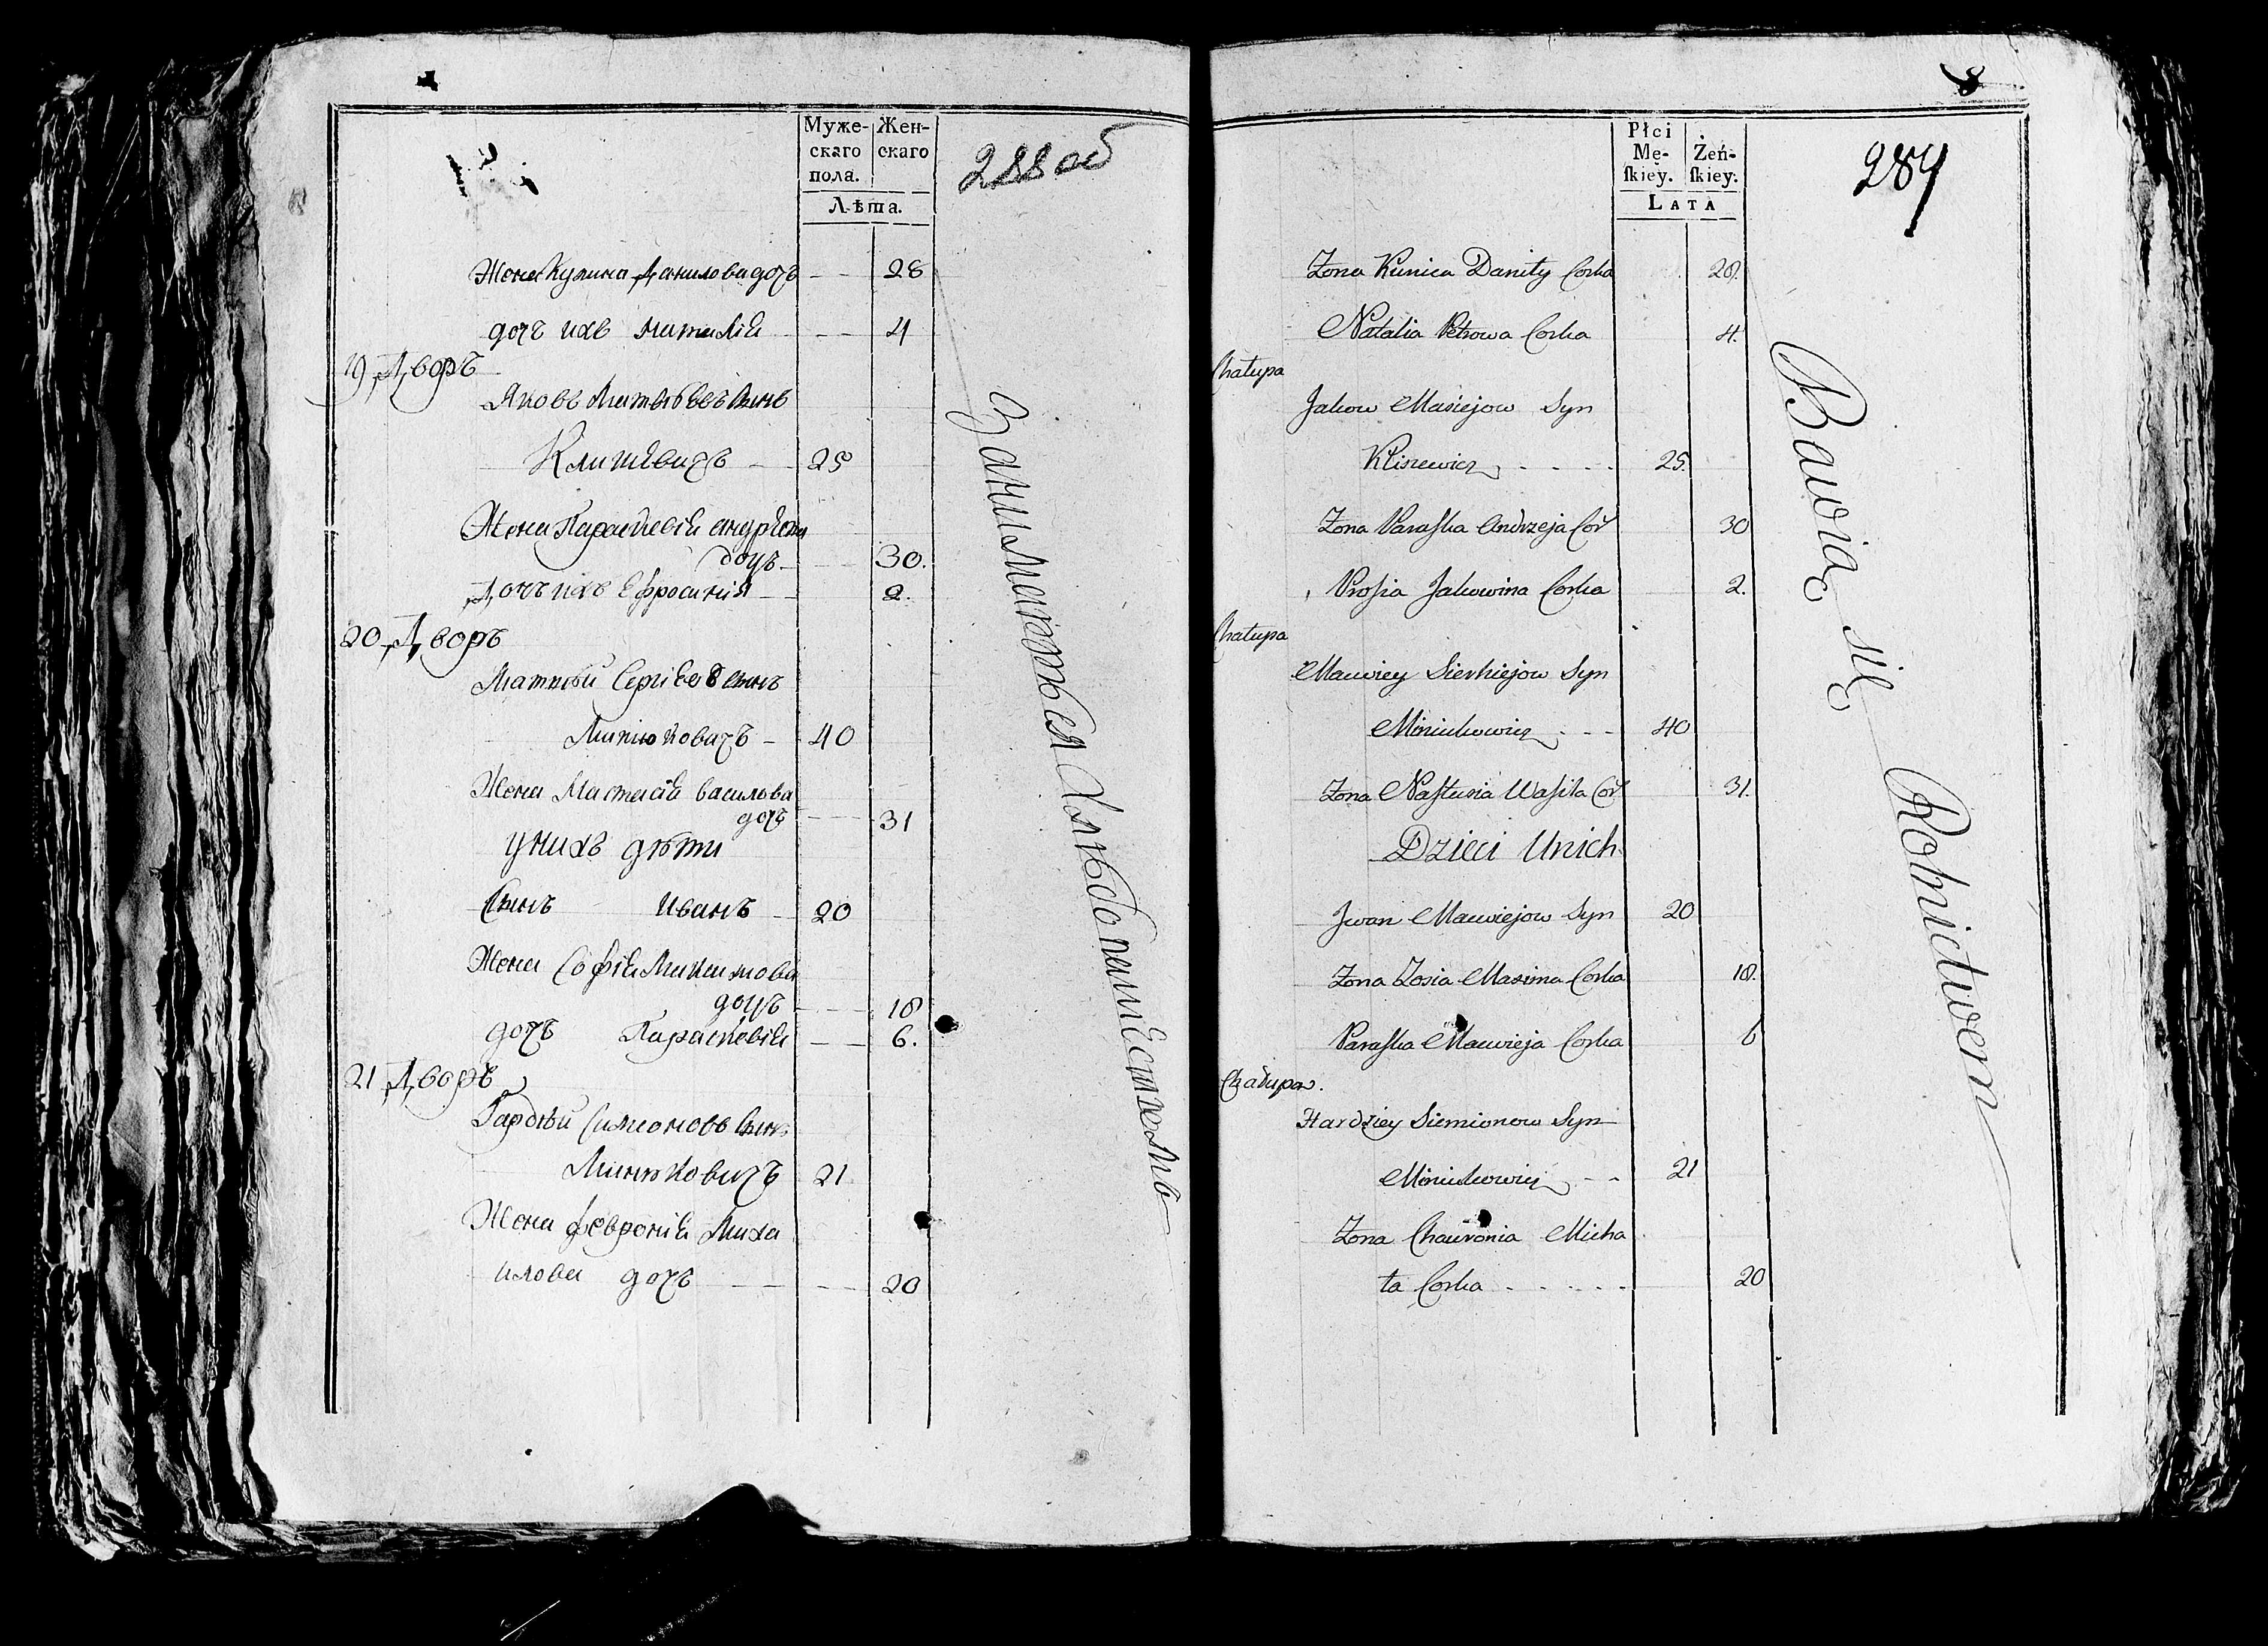 Муже-
скаго
пола.
Жен-
скаго
Лѣта.
288 об
Жена Кулина Данилова дочь — — 28
дочь ихъ Наталiя — — 4
19 Дворъ
Яковъ Матвѣевъ сынъ
Клишевичъ — 25
Жена Параскевiя андрѣева
дочь — — 30.
Дочь ихъ Ефросинiя — — 2.
20 Дворъ
Матвѣй Сергiевъ сынъ
Минюковичъ — 40
Жена Настасiя василова
дочь — — 31
У нихъ дѣти
Сынъ Иванъ — 20
Жена Софiя Максимова
дочь — — 18
дочь Параскевiя — — 6.
21 Дворъ
Гардѣй Симоновъ сынъ
Минюковичъ 21
Жена Февронiя Миха
илова дочь — — — 20
Занимаются хлѣбопашествомъ
Płci
Mę-
ſkiey.
Żeń-
ſkiey.
LATA
289
Zona Kunica Daniły Corka 28.
Natalia Petrowa Corka 4.
Chałupa
Jakow Maciejow Syn
Kliszewicz - - - - 25.
Zona Paraſka Andrzeja Cor 30
Proſia Jakowina Corka 2.
Chałupa
Macwiey Sierhiejow Syn
Miniukowicz - - - 40
Zona Naſtusia Waſila Cor 31.
Dzieci Unich
Jwan Macwiejow Syn 20
Zona Zosia Maxima Corka 18.
Paraſka Macwieja Corka 6
Chałupa.
Hardziey Siemionow Syn
Miniukowicz - - 21
Zona Chauronia Micha
ła Corka - - - - - 20
Bawią się Rolnictwem